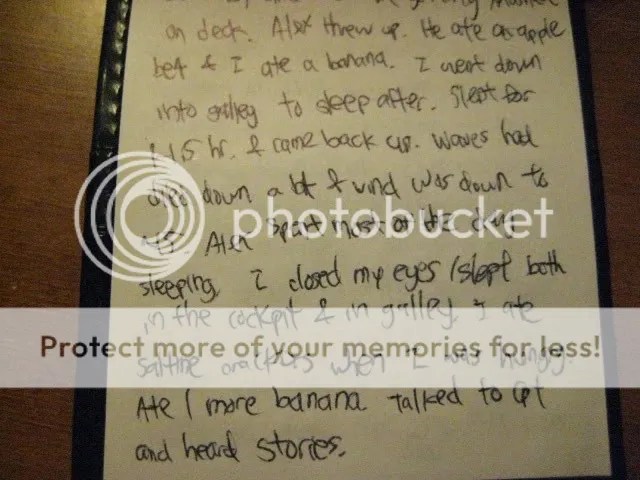 on deck. Alex threw up. He ate an apple
bef & I ate a banana. I went down
into galley to sleep after. Slept for
1.5 hr. & came back up. Waves had
died down a bit & wind was down to
Alex spent most of the day
photobucket
sleeping. I closed my eyes/slept both
in the cockpit & in galley. I ate
Protect more of your memories for less!
saltine crackers when I was hungry.
Ate 1 more banana. Talked to cpt
and heard stories.